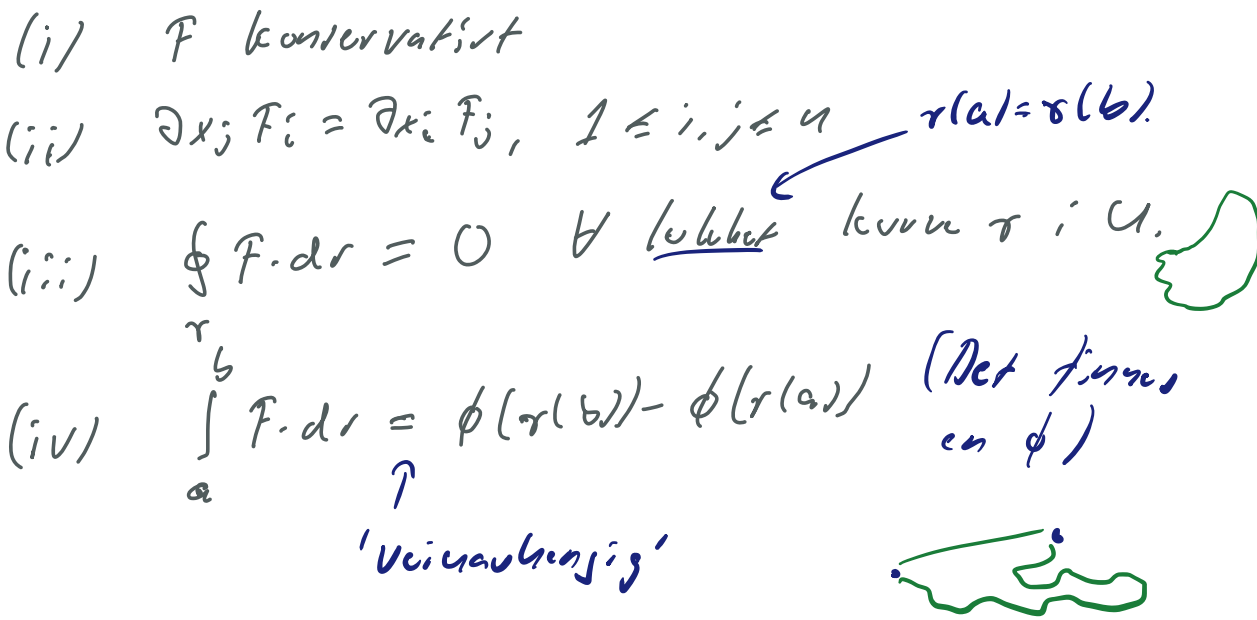 (i) F konservativt
(ii) ∂x_j F_i = ∂x_i F_j, 1 ≤ i, j ≤ n
r(a) = r(b).
(iii) ∮_r F·dr = 0 ∀ lukket kurve r i U.
(iv) ∫_a^b F·dr = φ(r(b)) - φ(r(a)) (Det finnes
en φ)
'veiuavhengig'